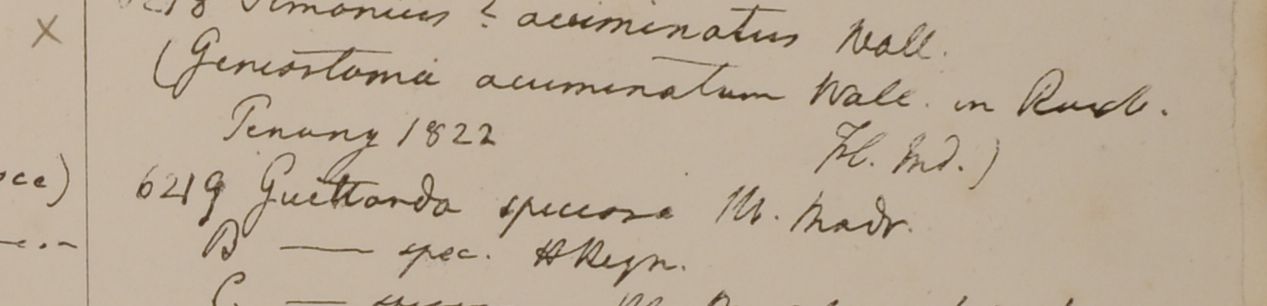 6218 Timonius? acuminatus Wall.
(Geniostoma acuminatum Wall. in Roxb.
Fl. Ind.)
Penang 1822
6219 Guettarda speciosa M. Madr.
B — spec. HRegn.
C —